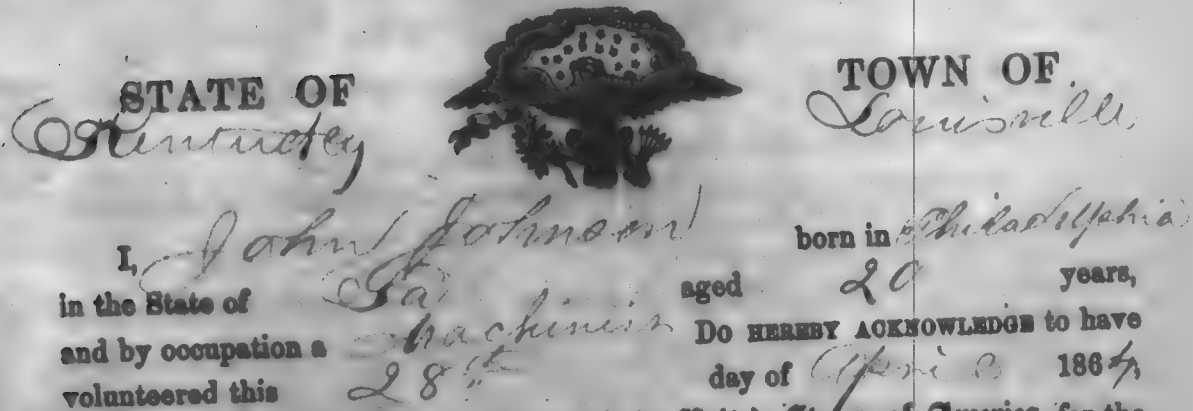 STATE OF TOWN OF
Kentucky Louisville.
I, John Johnson born in Philadelphia
in the State of Pa aged 20 years,
and by occupation a Machinist Do HEREBY ACKNOWLEDGE to have
volunteered this 28th day of April 1864,
States of America for the